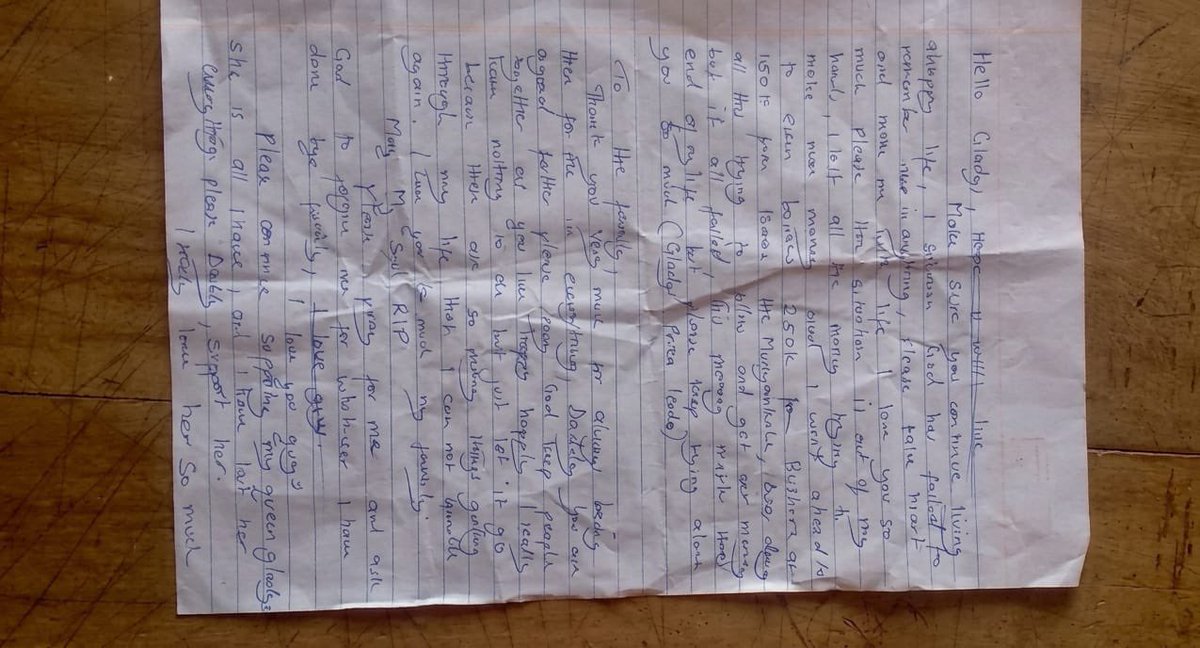 Hello Glady, I hope u will live
Make sure you continue living
a happy life, I know God has failed to
remember me in anything, please take heart
and move on with life I love you so
much please the situation is out of my
hand, I lost all the money trying to
make more money but I went ahead
to even borrow 250k Bushera and
150k from the Munyankole,
all this trying to and get money
but it all failed, this means
end of my life but please keep trying
you so much (Glady
To the family,
Thank you very much for always being
there for me in everything, Daddy you are
a good father please may God keep people
together as you live happily I really
have nothing to do but just let it go
because there are so many things going
through my life that I can not handle
again. I love you so much my family.
May My Soul R.I.P.
please pray for me and ask
God to forgive me for whatever I have
done bye family, I love you guys
please continue supporting my queen gladys
she is all I have, and I have lost her
everything please Daddy, support her.
I really love her so much